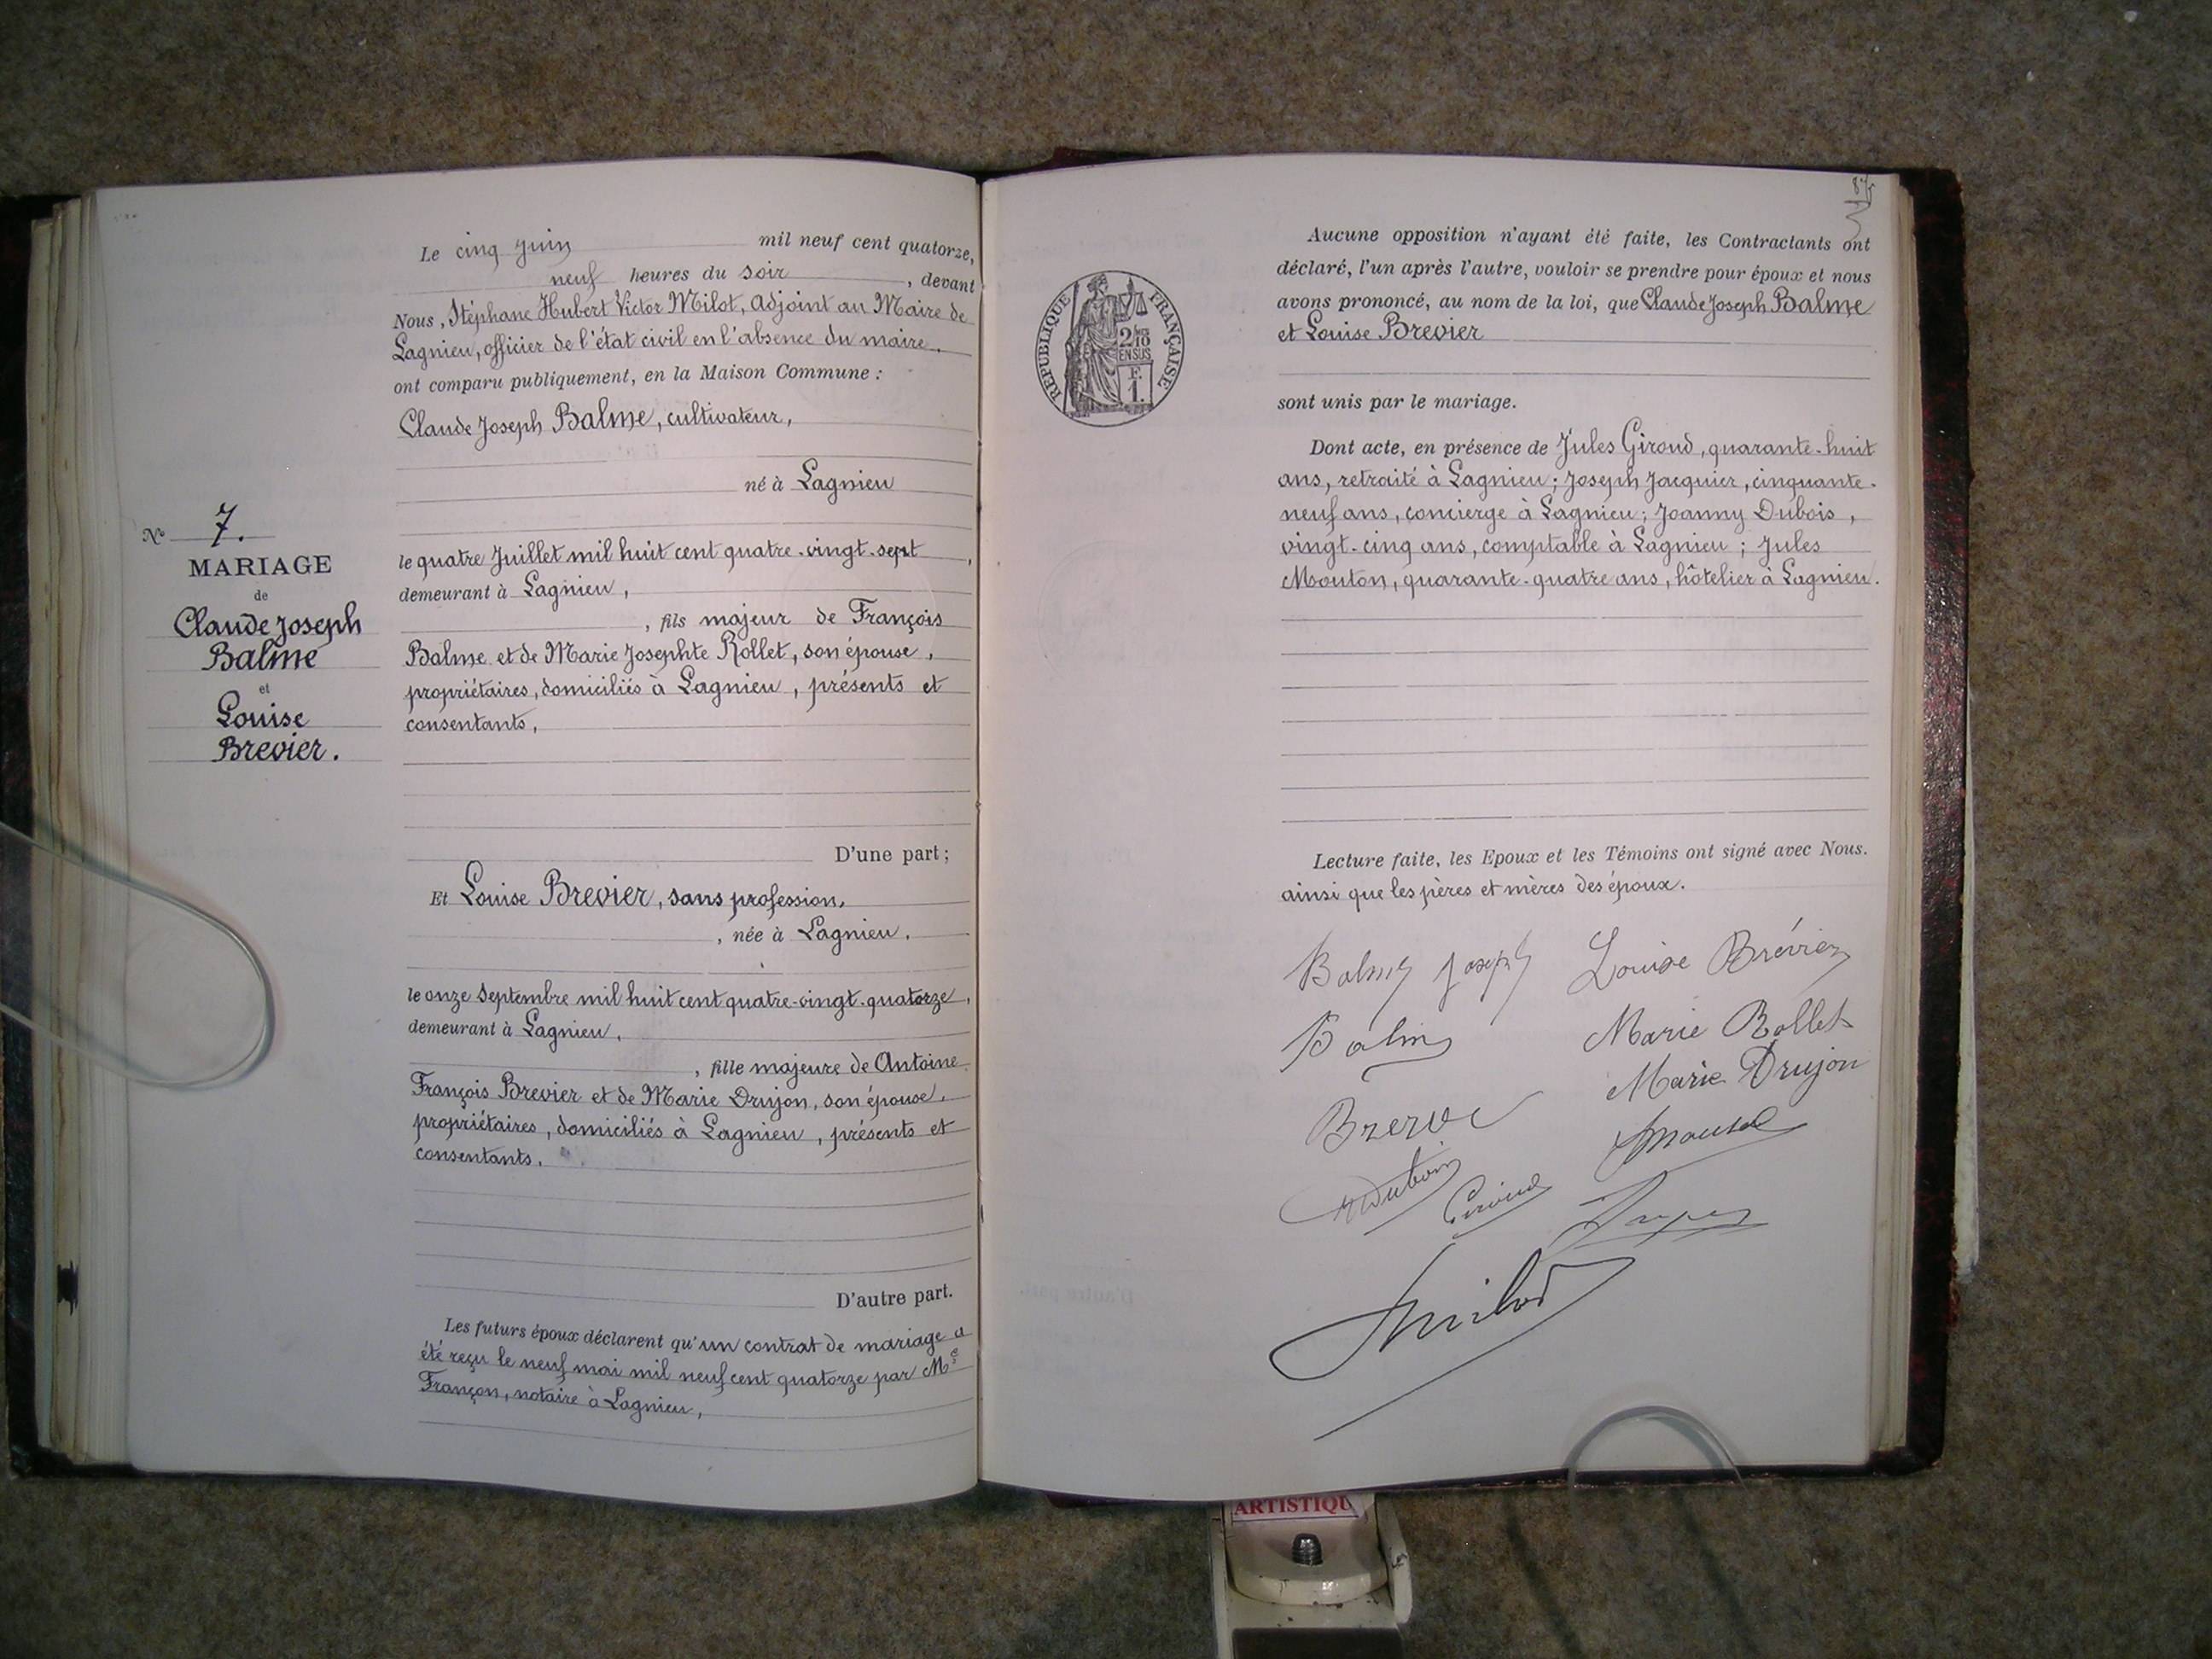 Le cinq juin mil neuf cent quatorze,
neuf heures du soir, devant
Nous, Stéphane Hubert Victor Milot, Adjoint au Maire de
Lagnieu, officier de l'état civil en l'absence du maire,
ont comparu publiquement, en la Maison Commune :
Claude Joseph Balme, cultivateur,
né à Lagnieu
le quatre Juillet mil huit cent quatre-vingt-sept,
demeurant à Lagnieu,
, fils majeur de François
Balme et de Marie Josephte Rollet, son épouse,
propriétaires, domiciliés à Lagnieu, présents et
consentants,
D'une part ;
Et Louise Brevier, sans profession,
, née à Lagnieu,
le onze Septembre mil huit cent quatre-vingt-quatorze,
demeurant à Lagnieu,
, fille majeure de Antoine
François Brevier et de Marie Drujon, son épouse,
propriétaires, domiciliés à Lagnieu, présents et
consentants,
D'autre part.
Les futurs époux déclarent qu'un contrat de mariage a
été reçu le neuf mai mil neuf cent quatorze par Me
Françon, notaire à Lagnieu,
N° 7.
MARIAGE
de
Claude Joseph
Balme
et
Louise
Brevier.
REPUBLIQUE FRANÇAISE
2/10
EN SUS
F.
1.
Aucune opposition n'ayant été faite, les Contractants ont
déclaré, l'un après l'autre, vouloir se prendre pour époux et nous
avons prononcé, au nom de la loi, que Claude Joseph Balme
et Louise Brevier
sont unis par le mariage.
Dont acte, en présence de Jules Giroud, quarante-huit
ans, retraité à Lagnieu ; Joseph Jacquier, cinquante-
neuf ans, concierge à Lagnieu ; Joanny Dubois,
vingt-cinq ans, comptable à Lagnieu ; Jules
Mouton, quarante-quatre ans, hôtelier à Lagnieu.
Lecture faite, les Epoux et les Témoins ont signé avec Nous.
ainsi que les pères et mères des époux.
Balme Joseph Louise Brévier
Marie Rollet
Marie Drujon
Dubois Giroud
Milot
ARTISTIQU